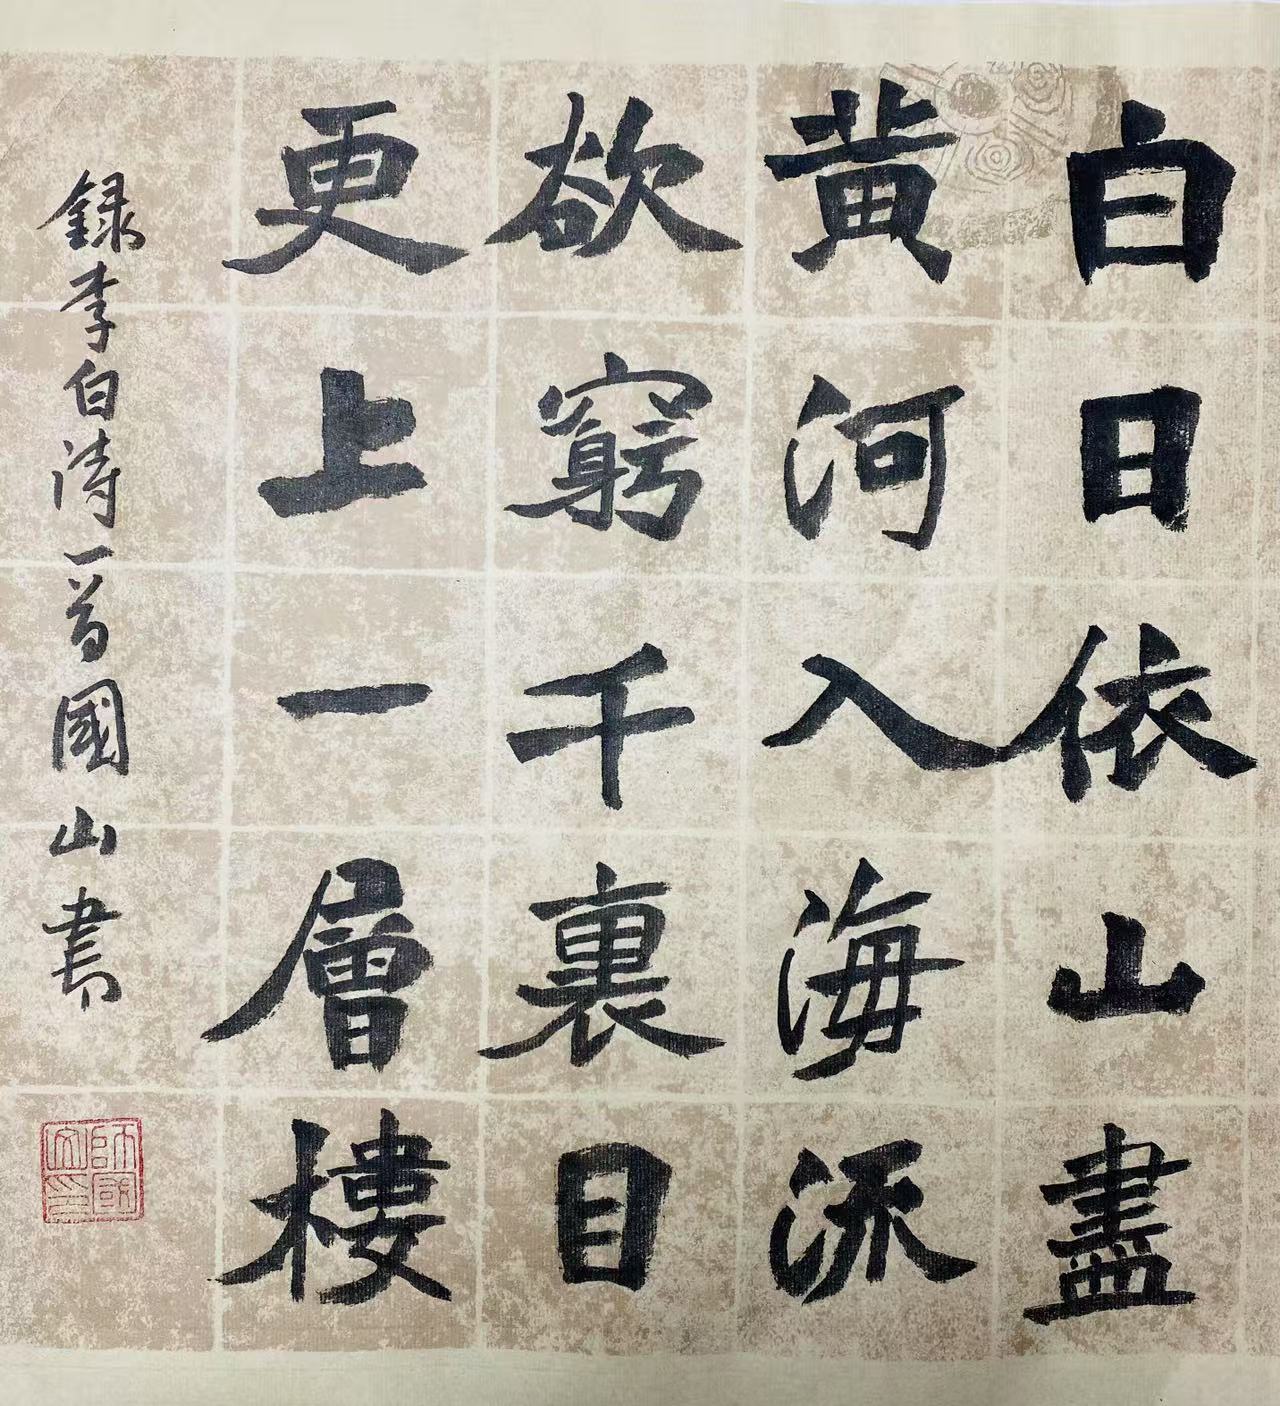 白日依山盡
黄河入海派
欲窮千裏目
更上一層樓
録李白詩一首國山書